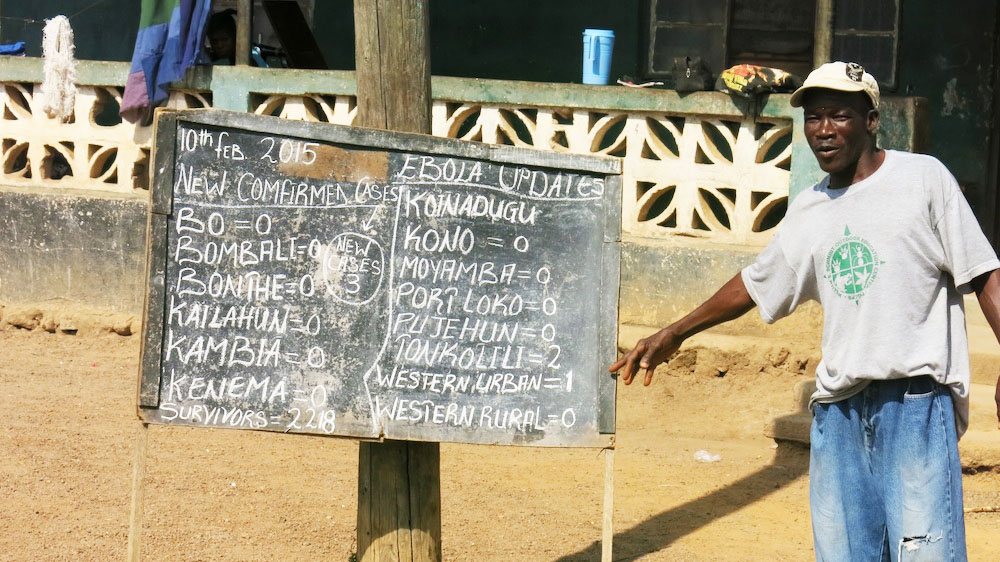 10th feb. 2015
NEW COMFIRMED CASES
BO = 0
BOMBALI = 0
BONTHE = 0
KAILAHUN = 0
KAMBIA = 0
KENEMA = 0
SURVIVORS = 2.218
NEW
CASES
3
EBOLA UPDATES
KOINADUGU
KONO = 0
MOYAMBA = 0
PORT LOKO = 0
PUJEHUN = 0
TONKOLILI = 2
WESTERN URBAN = 1
WESTERN RURAL = 0